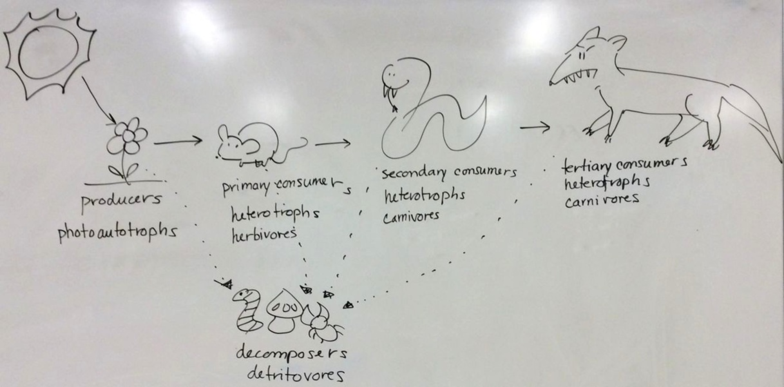 producers
photoautotrophs
primary consumers
heterotrophs
herbivores
secondary consumers
heterotrophs
carnivores
tertiary consumers
heterotrophs
carnivores
decomposers
detritovores